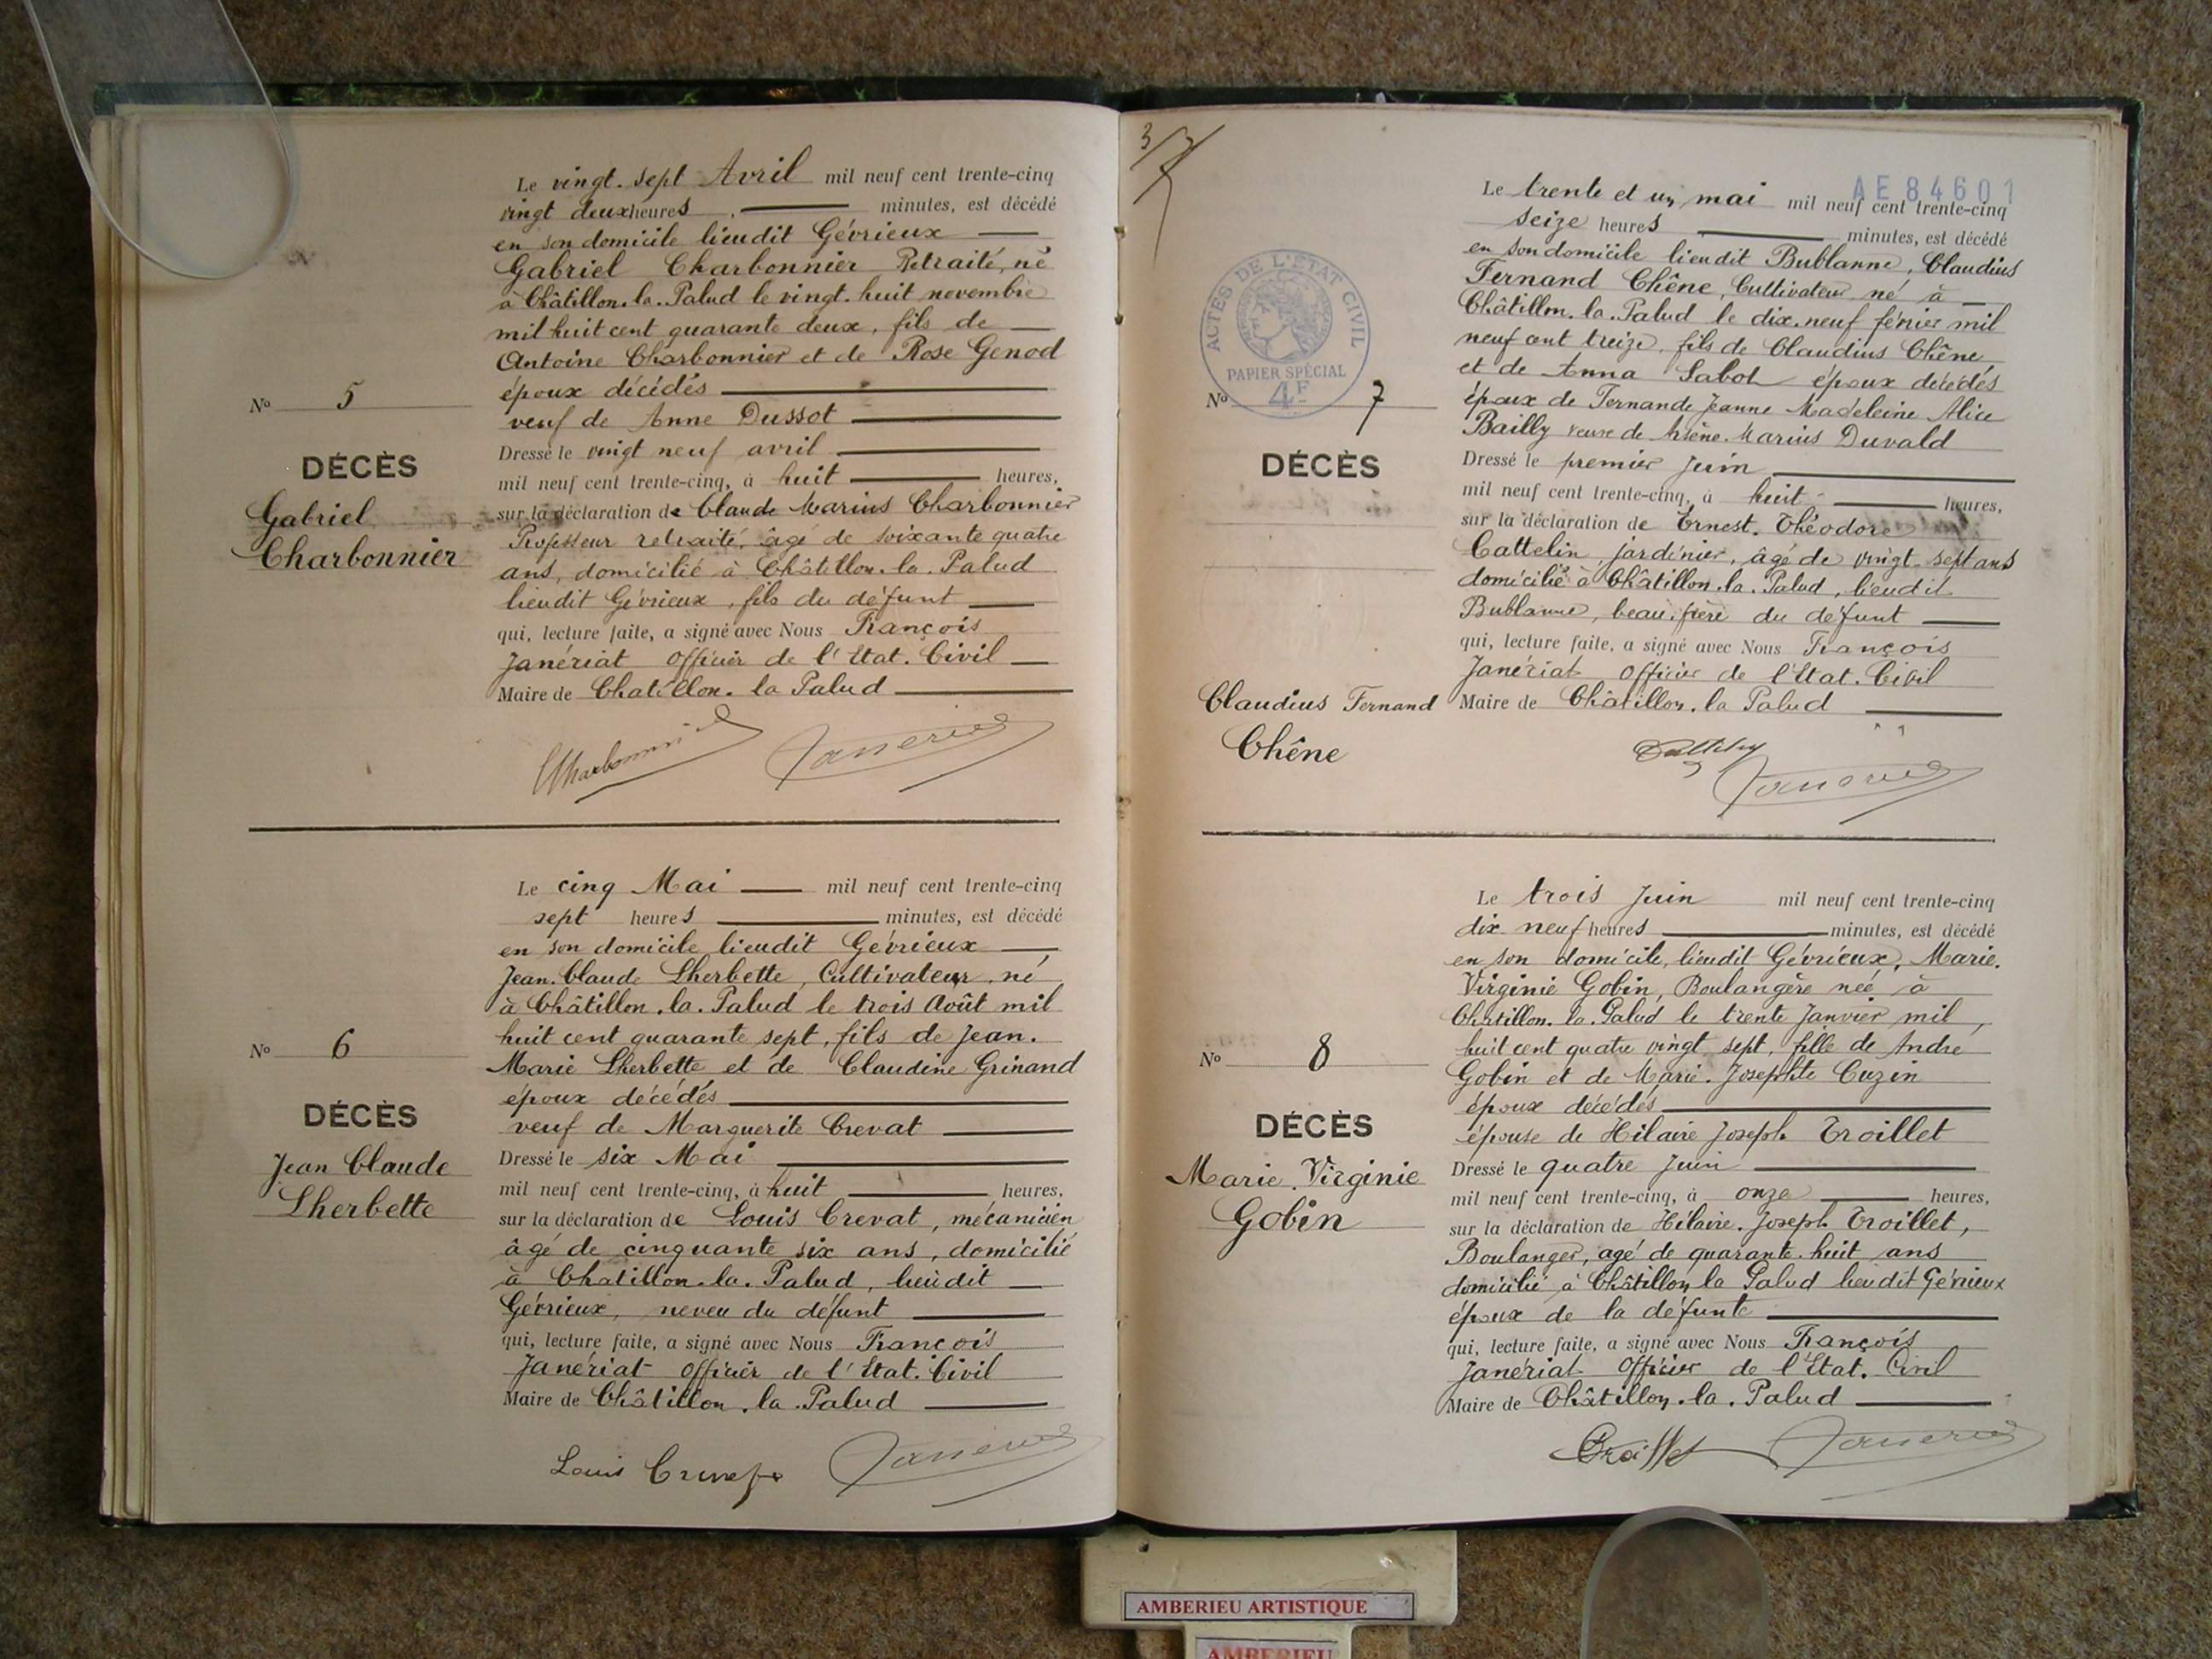 Le vingt-sept Avril mil neuf cent trente-cinq
vingt deux heures minutes, est décédé
en son domicile lieudit Gévrieux
Gabriel Charbonnier Retraité, né
à Châtillon-la-Palud le vingt-huit novembre
mil huit cent quarante deux, fils de
Antoine Charbonnier et de Rose Genod
époux décédés
veuf de Anne Dussot
Dressé le vingt neuf avril
mil neuf cent trente-cinq, à huit heures,
sur la déclaration de Claude Marius Charbonnier
Professeur retraité, âgé de soixante quatre
ans, domicilié à Châtillon-la-Palud
lieudit Gévrieux, fils du défunt
qui, lecture faite, a signé avec Nous François
Janériat Officier de l'Etat-Civil
Maire de Chatillon-la Palud
No 5
DÉCÈS
Gabriel
Charbonnier
Le cinq Mai mil neuf cent trente-cinq
sept heures minutes, est décédé
en son domicile lieudit Gévrieux
Jean-Claude Lherbette, Cultivateur, né
à Châtillon-la-Palud le trois Août mil
huit cent quarante sept, fils de Jean-
Marie Lherbette et de Claudine Grinand
époux décédés
veuf de Marguerite Crevat
Dressé le six Mai
mil neuf cent trente-cinq, à huit heures,
sur la déclaration de Louis Crevat, mécanicien
âgé de cinquante six ans, domicilié
à Chatillon-la-Palud, lieudit
Gévrieux, neveu du défunt
qui, lecture faite, a signé avec Nous François
Janériat Officier de l'Etat-Civil
Maire de Châtillon-la-Palud
Louis
No 6
DÉCÈS
Jean Claude
Lherbette
3
AE84601
Le trente et un mai mil neuf cent trente-cinq
seize heures minutes, est décédé
en son domicile lieudit Bublanne, Claudius
Fernand Chêne, Cultivateur, né à
Châtillon-la-Palud le dix-neuf février mil
neuf cent treize, fils de Claudius Chêne
et de Anna Sabot époux décédés
époux de Fernande Jeanne Madeleine Alice
Bailly veuve de Arsène-Marius Duvald
Dressé le premier Juin
mil neuf cent trente-cinq, à huit heures,
sur la déclaration de Ernest-Théodore
Cattelin jardinier, âgé de vingt-sept ans
domicilié à Châtillon-la-Palud, lieudit
Bublanne, beau-frère du défunt
qui, lecture faite, a signé avec Nous François
Janériat Officier de l'Etat-Civil
Maire de Châtillon-la Palud
ACTES DE L'ÉTAT CIVIL
PAPIER SPÉCIAL
4F
No 7
DÉCÈS
Claudius Fernand
Chêne
Le trois Juin mil neuf cent trente-cinq
dix-neuf heures minutes, est décédé
en son domicile, lieudit Gévrieux, Marie-
Virginie Gobin, Boulangère née à
Châtillon-la-Palud le trente Janvier mil
huit cent quatre vingt sept, fille de André
Gobin et de Marie-Josephte Cuzin
époux décédés
épouse de Hilaire Joseph Troillet
Dressé le quatre Juin
mil neuf cent trente-cinq, à onze heures,
sur la déclaration de Hilaire-Joseph Troillet,
Boulanger, agé de quarante-huit ans
domicilié à Châtillon la Palud lieudit Gévrieux
époux de la défunte
qui, lecture faite, a signé avec Nous François
Janériat Officier de l'Etat-Civil
Maire de Châtillon-la-Palud
Troillet
No 8
DÉCÈS
Marie-Virginie
Gobin
AMBERIEU ARTISTIQUE
AMBERIEU